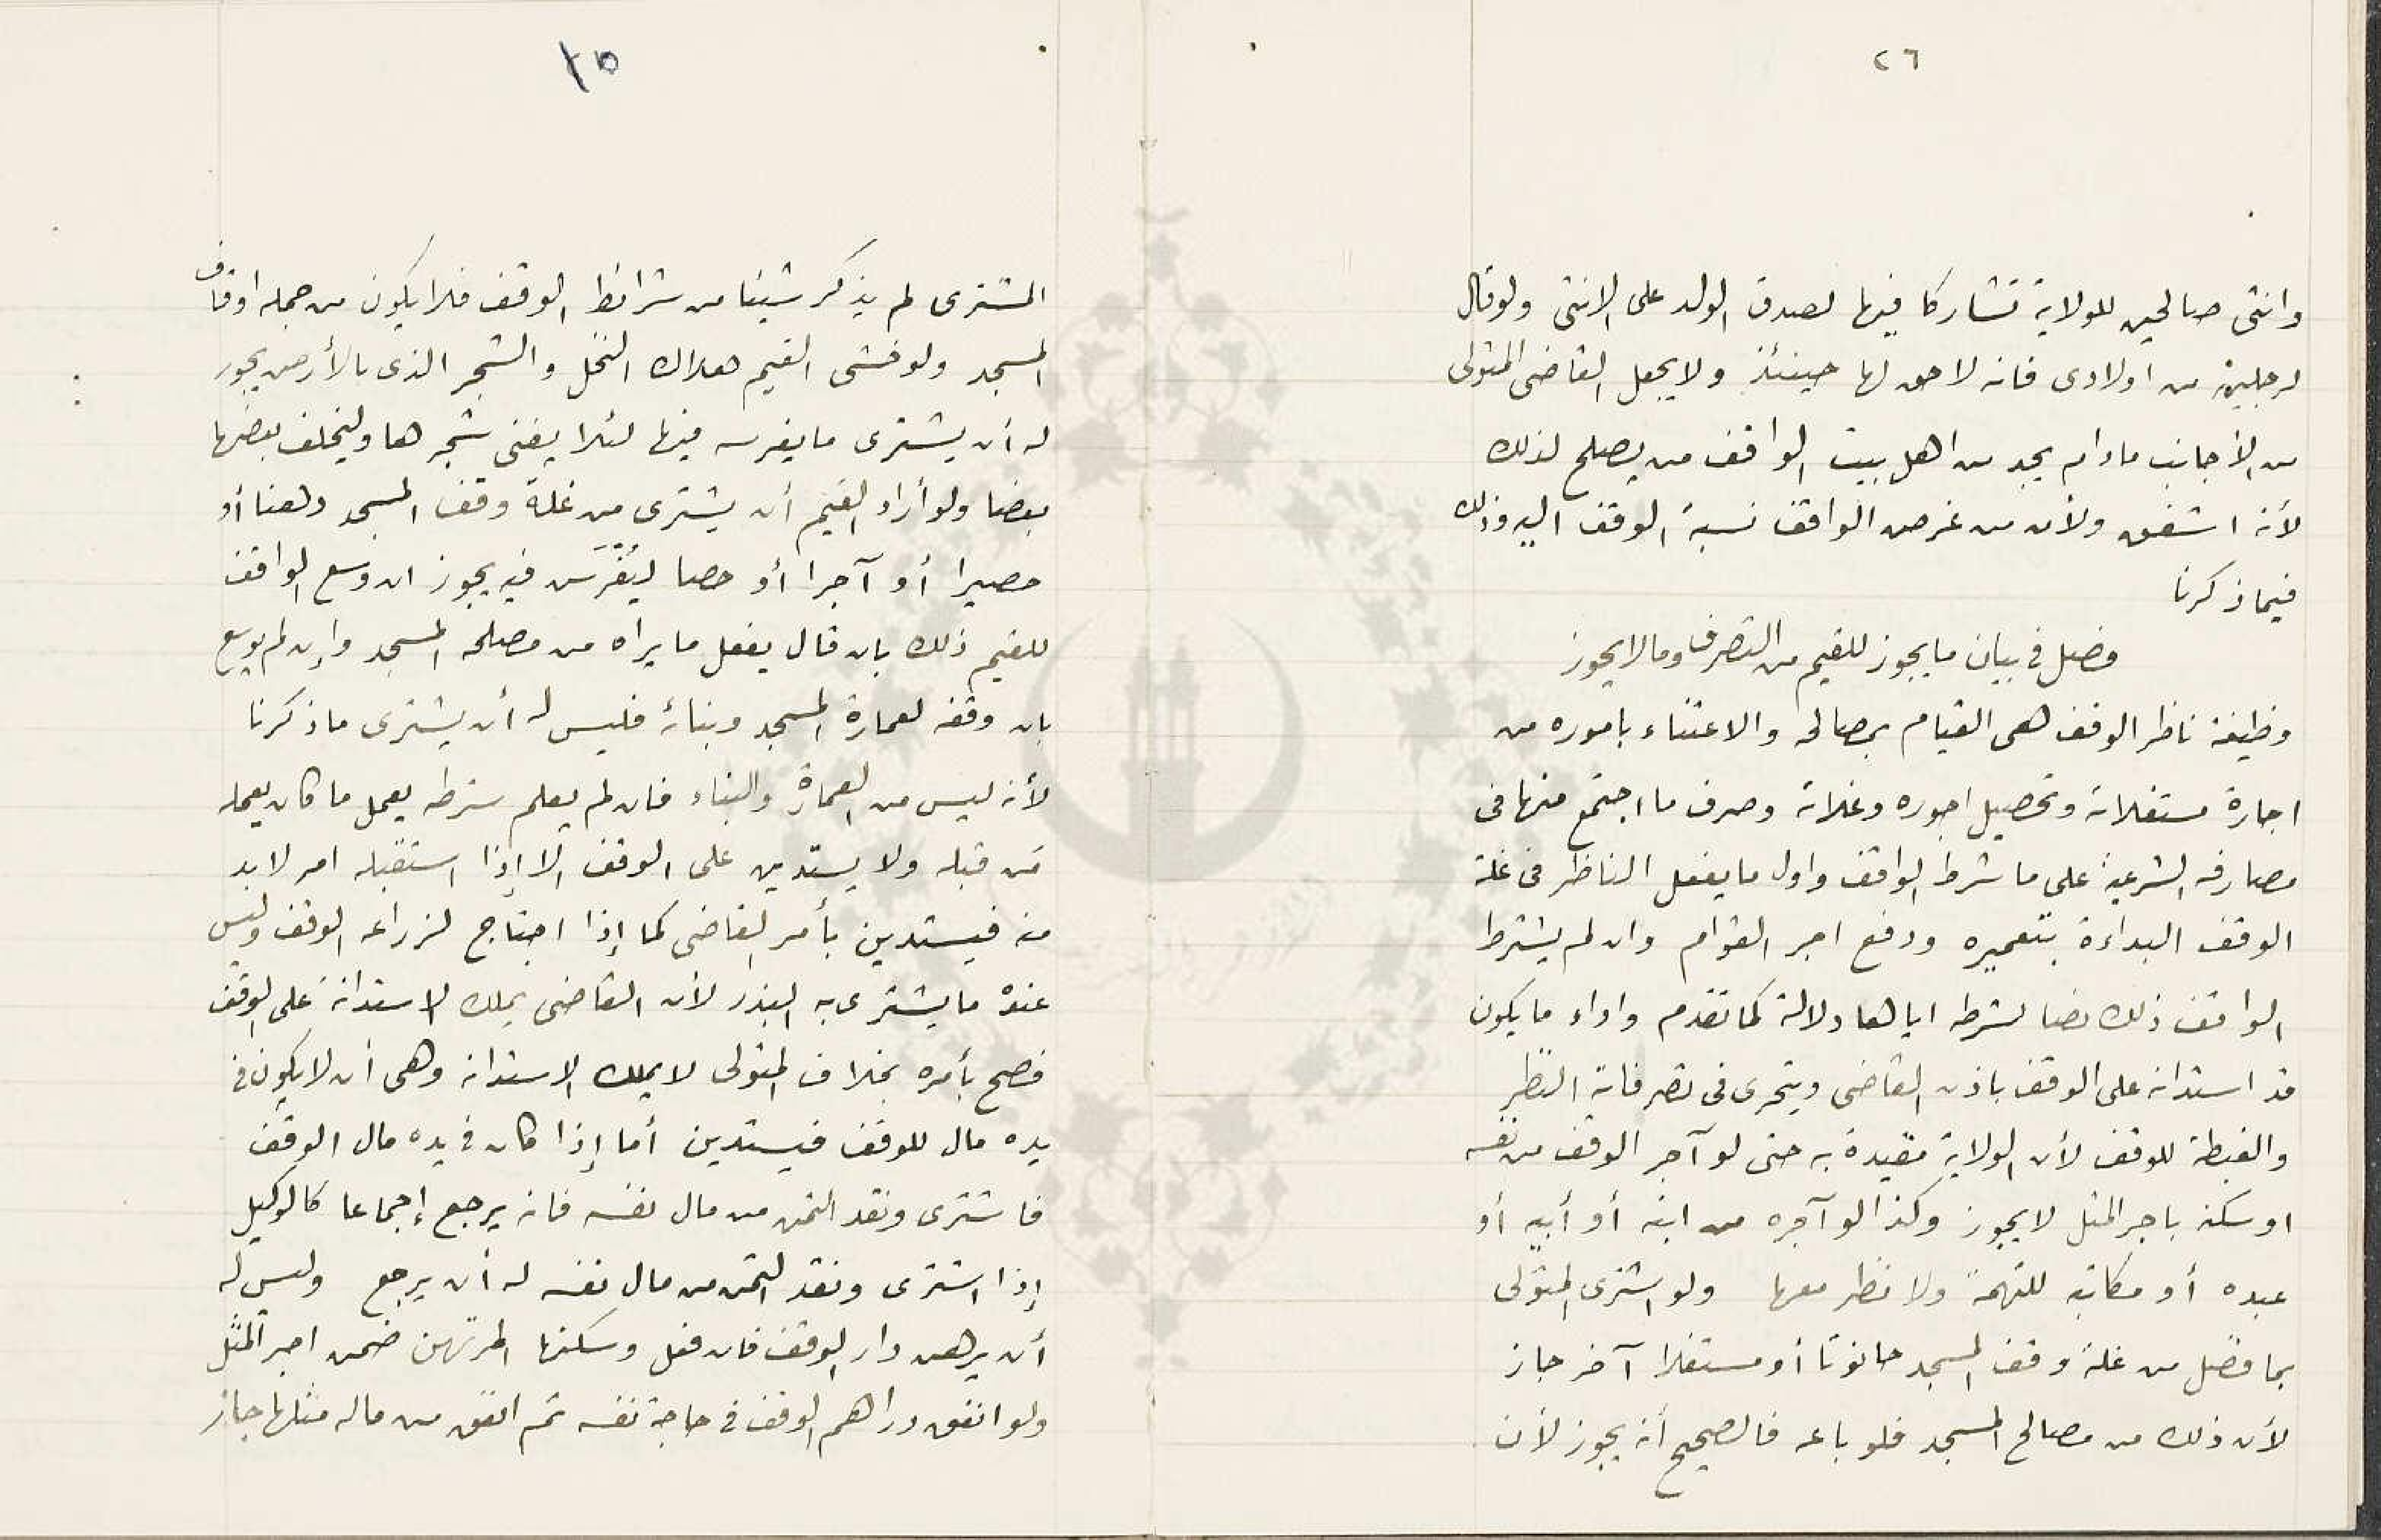 ٢٦
وانثى صالحين للولاية تشاركا فيها لصدق الولد على الانثى ولو قال
لرجلين من اولادى فانه لا حق لها حينئذ ولا يجعل القاضى المتولى
من الأجانب مادام يجد من اهل بيت الواقف من يصلح لذلك
لأنه اشفق ولأن من غرض الواقف نسبة الوقف اليه وذلك
فيما ذكرنا
فصل فى بيان ما يجوز للقيم من التصرف وما لا يجوز
وظيفة ناظر الوقف هى القيام بمصالحه والاعتناء باموره من
اجارة مستغلاته وتحصيل اجوره وغلاته وصرف ما اجتمع منها فى
مصارفه الشرعية على ما شرط الواقف واول ما يفعل الناظر فى غلة
الوقف البداءة بتعميره ودفع اجر القوام وان لم يشترط
الواقف ذلك نصا لشرطه اياها دلالة كما تقدم واداء ما يكون
قد استدانه على الوقف باذن القاضى ويتحرى فى تصرفاته النظر
والغبطة للوقف لأن الولاية مقيدة به حتى لو آجر الوقف من نفسه
او سكنه باجر المثل لا يجوز وكذا لو آجره من ابنه أو أبيه أو
عبده أو مكاتبه للتهمة ولا نظر معها ولو اشترى المتولى
بما فضل من غلة وقف المسجد حانوتا أو مستغلا آخر جاز
لأن ذلك من مصالح المسجد فلو باعه فالصحيح أنه يجوز لأن
٢٥
المشترى لم يذكر شيئا من شرائط الوقف فلا يكون من جملة اوقاف
المسجد ولو خشى القيم هلاك النخل والشجر الذى بالأرض يجوز
له أن يشترى ما يغرسه فيها لئلا يفنى شجرها وليخلف بعضها
بعضا ولو أراد القيم أن يشترى من غلة وقف المسجد دهنا أو
حصيرا أو آجرا أو حصا ليُفْرَش فيه يجوز ان وسع الواقف
للقيم ذلك بان قال يفعل ما يراه من مصلحة المسجد وإن لم يوسع
بان وقفه لعمارة المسجد وبنائه فليس له أن يشترى ما ذكرنا
لأنه ليس من العمارة والبناء فان لم يعلم شرطه يعمل ما كان يعمله
مَن قبله ولا يستدين على الوقف الا إذا استقبله امر لابد
منه فيستدين بأمر القاضى كما إذا احتاج لزراعة الوقف وليس
عنده ما يشترى به البذر لأن القاضى يملك الاستدانة على الوقف
فصح بأمره بخلاف المتولى لا يملك الاستدانة وهى أن لا يكون فى
يده مال للوقف فيستدين أما إذا كان فى يده مال الوقف
فاشترى ونقد الثمن من مال نفسه فانه يرجع إجماعا كالوكيل
إذا اشترى ونقد الثمن من مال نفسه له أن يرجع وليس له
أن يرهن دار الوقف فان فعل وسكنها المرتهن ضمن اجر المثل
ولو انفق دراهم الوقف فى حاجة نفسه ثم انفق من ماله مثلها جاز